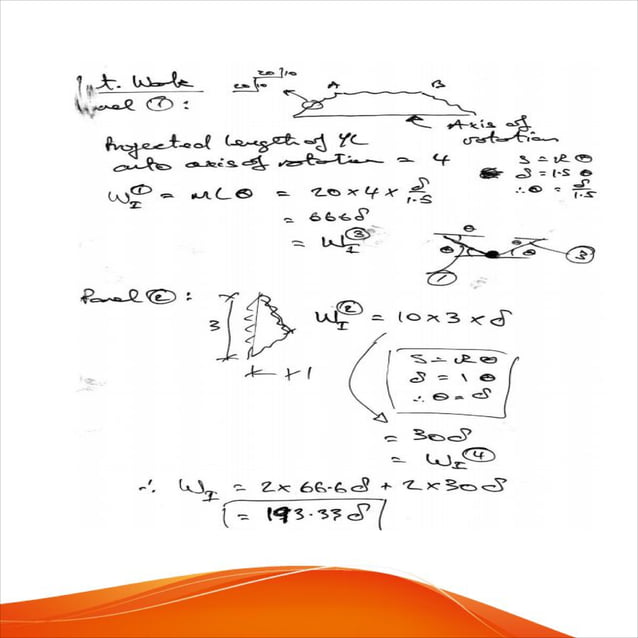 Int. Work
Panel ① :
20/10
20/10
A
B
Axis of
rotation
Projected length of YL
onto axis of rotation = 4
S = RΘ
δ = 1.5 Θ
∴ Θ = δ/1.5
W_I^① = MLΘ = 20 × 4 × δ/1.5
= 666δ
= W_I^③
Θ
Θ
Θ
Θ
①
③
Panel ② :
3
1
W_I^② = 10 × 3 × δ
S = RΘ
δ = 1 Θ
∴ Θ = δ
= 30δ
= W_I^④
∴ W_I = 2 × 66.6δ + 2 × 30δ
= 193.33δ